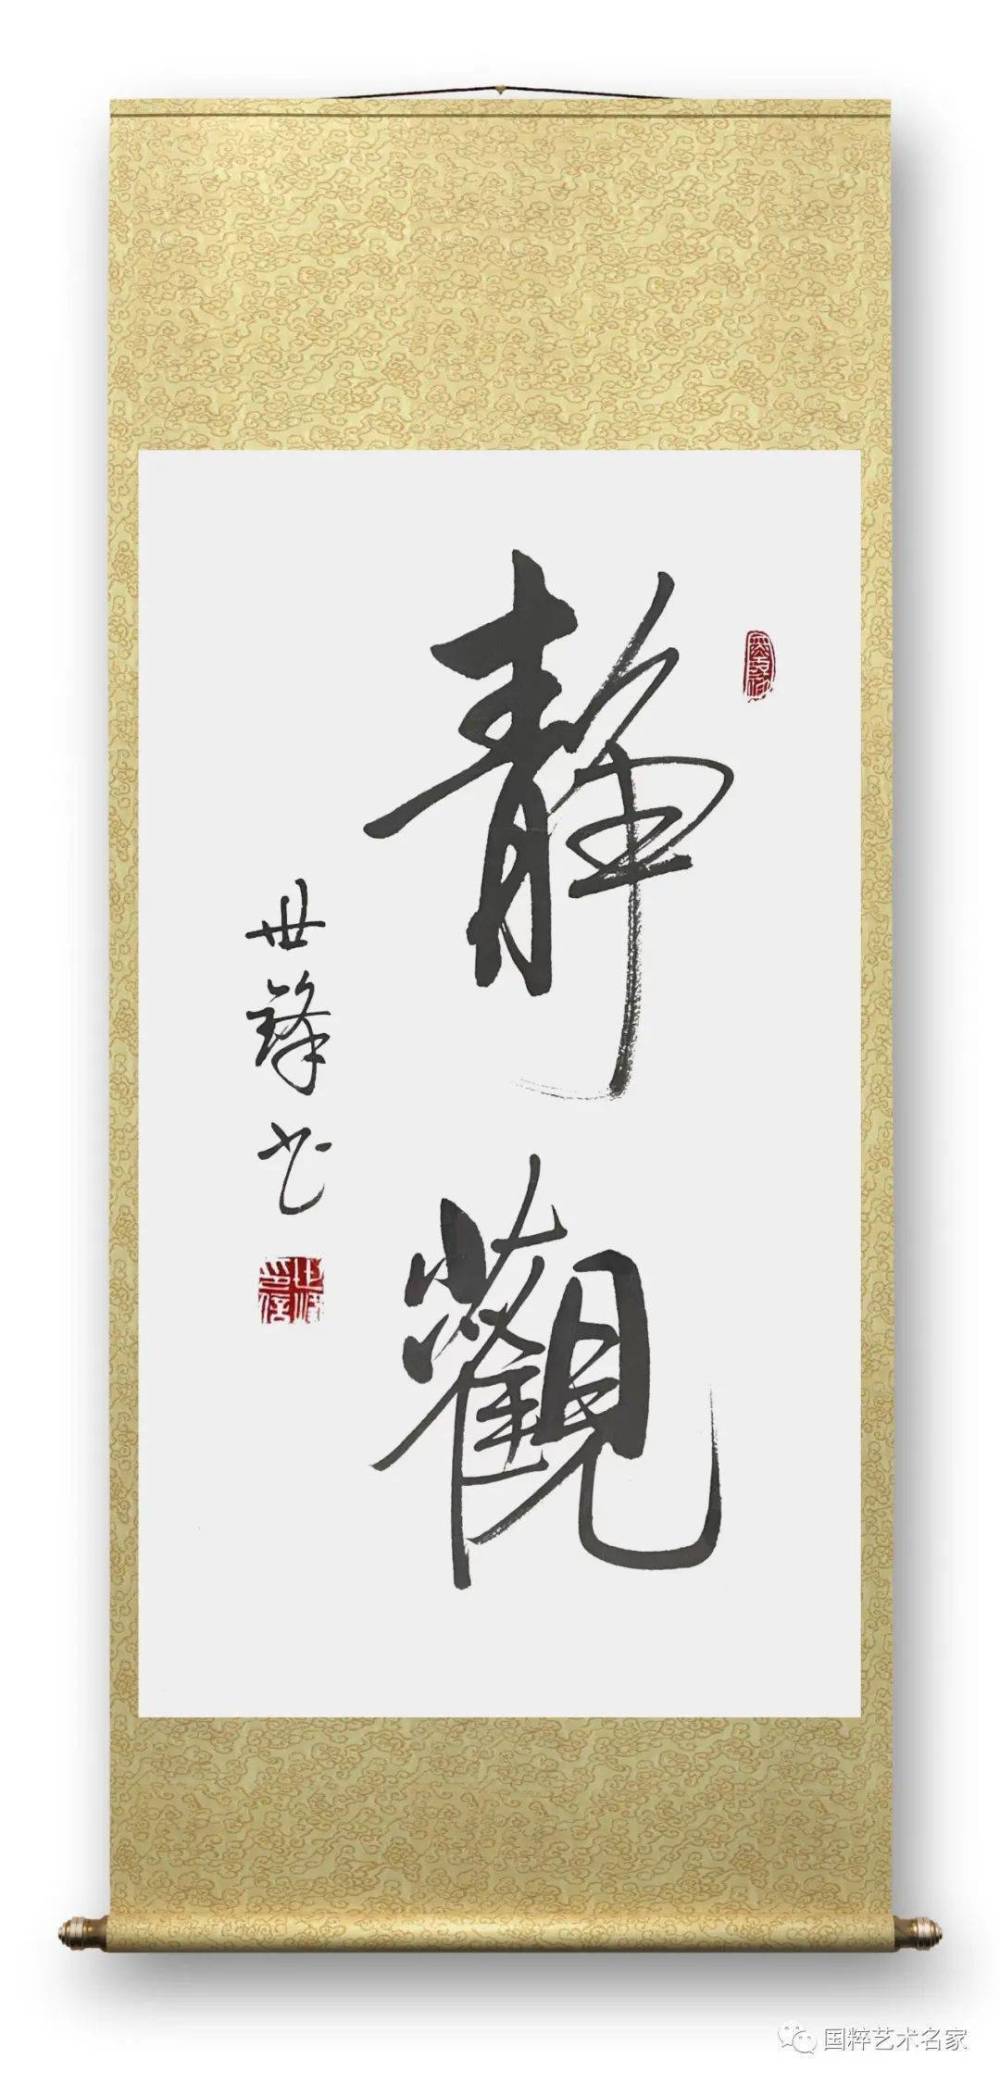 靜觀
世鋒书
国粹艺术名家